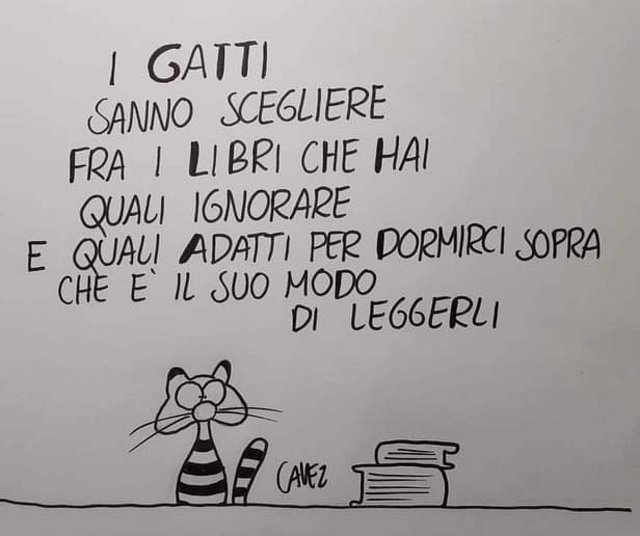 I GATTI
SANNO SCEGLIERE
FRA I LIBRI CHE HAI
QUALI IGNORARE
E QUALI ADATTI PER DORMIRCI SOPRA
CHE E' IL SUO MODO
DI LEGGERLI
CAVEZ